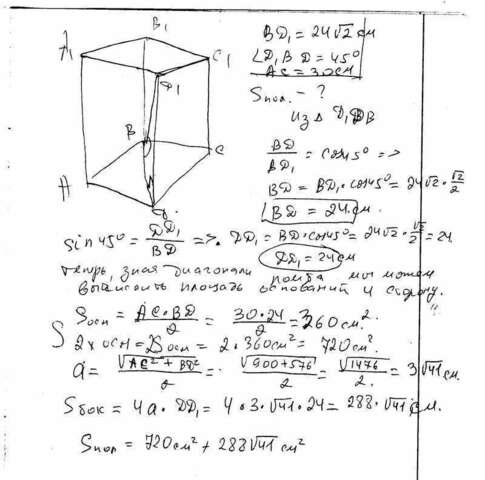 B₁
A₁
C₁
D₁
B
A
C
D
BD₁ = 24√2 см
∠D₁BD = 45°
AC = 30 см
Sпол. - ?
из Δ D₁DB
BD/BD₁ = cos45° =>
BD = BD₁·cos45° = 24√2·√2/2
∠BD = 24 см.
sin45° = DD₁/BD => DD₁ = BD·cos45° = 24√2·√2/2 = 24
DD₁ = 24 см
теперь, зная диагонали ромба мы можем
вычислить площадь оснований и сторону.
Sосн = AC·BD/2 = 30·24/2 = 360 см².
S2х осн = 2Sосн = 2·360 см² = 720 см².
a = √AC² + BD²/2 = √900+576/2 = √1476/2 = 3√41 см.
Sбок = 4a·DD₁ = 4·3·√41·24 = 288·√41 см.
Sпол = 720 см² + 288√41 см²